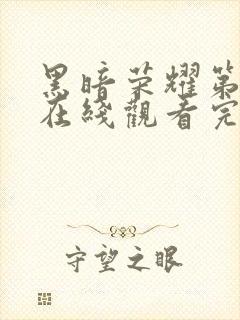 黑暗荣耀第
在綫觀看完
守望之眼